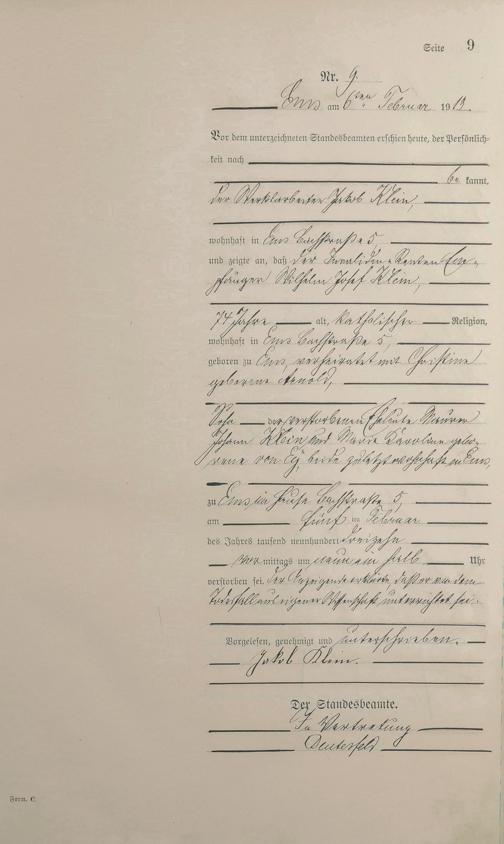 Seite 9
Nr. 9.
Ems am 6ten Februar 1913.
Vor dem unterzeichneten Standesbeamten erschien heute, der Persönlich-
keit nach
be kannt,
der Werksarbeiter Jakob Klein,
wohnhaft in Ems Bachstraße 5,
und zeigte an, daß der Invaliden-Renten Em-
pfänger Wilhelm Josef Klein,
74 Jahre alt, katholischer Religion,
wohnhaft in Ems Bachstraße 5,
geboren zu Ems, verheiratet mit Christine
geborene Arnold,
Sohn der verstorbenen Eheleute Maurer
Johann Klein und Marie Karoline gebo-
rene von Ey beide zuletzt wohnhaft in Ems,
zu Ems im Hause Bachstraße 5,
am fünf ten Februar
des Jahres tausend neunhundert dreizehn
vor mittags um neun ein halb Uhr
verstorben sei. Der Anzeigende erklärte, daß er von dem
Todesfall aus eigener Wissenschaft unterrichtet sei.
Vorgelesen, genehmigt und unterschrieben.
Jakob Klein.
Der Standesbeamte.
In Vertretung
Form. C.